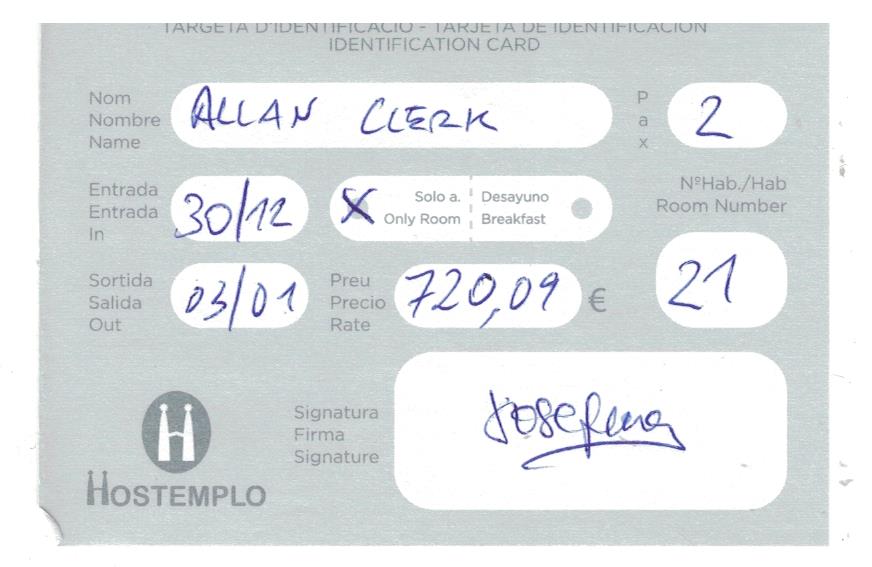 TARGETA D'IDENTIFICACIÓ - TARJETA DE IDENTIFICACIÓN
IDENTIFICATION CARD
Nom
Nombre
Name
ALLAN CLERK
P
a
x
2
Entrada
Entrada
In
30/12
X
Solo a.
Only Room
Desayuno
Breakfast
NºHab./Hab
Room Number
21
Sortida
Salida
Out
03/01
Preu
Precio
Rate
720,09 €
Signatura
Firma
Signature
Josefina
H
HOSTEMPLO